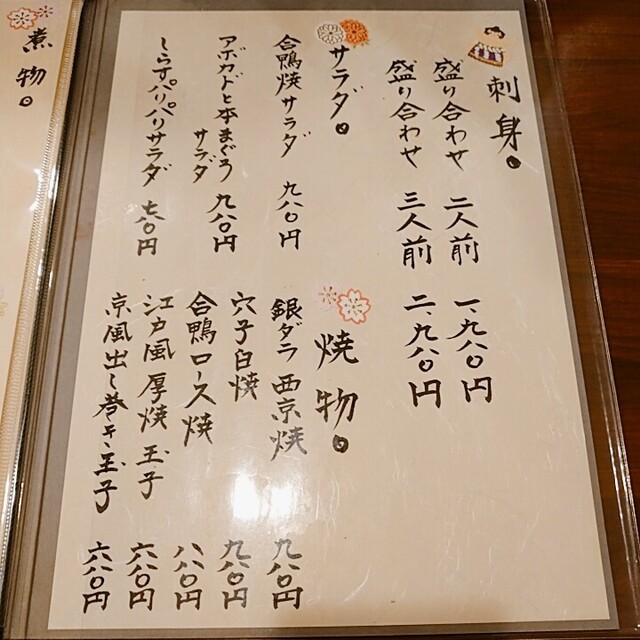 刺身。
盛り合わせ 二人前 一、九八〇円
盛り合わせ 三人前 二、九八〇円
サラダ。
合鴨焼サラダ 九八〇円
アボカドと本まぐろ
サラダ 九八〇円
しらすパリパリサラダ 七八〇円
焼物。
銀ダラ西京焼 九八〇円
穴子白焼 九八〇円
合鴨ロース焼 八八〇円
江戸風厚焼玉子 六八〇円
京風出し巻き玉子 六八〇円
煮物。